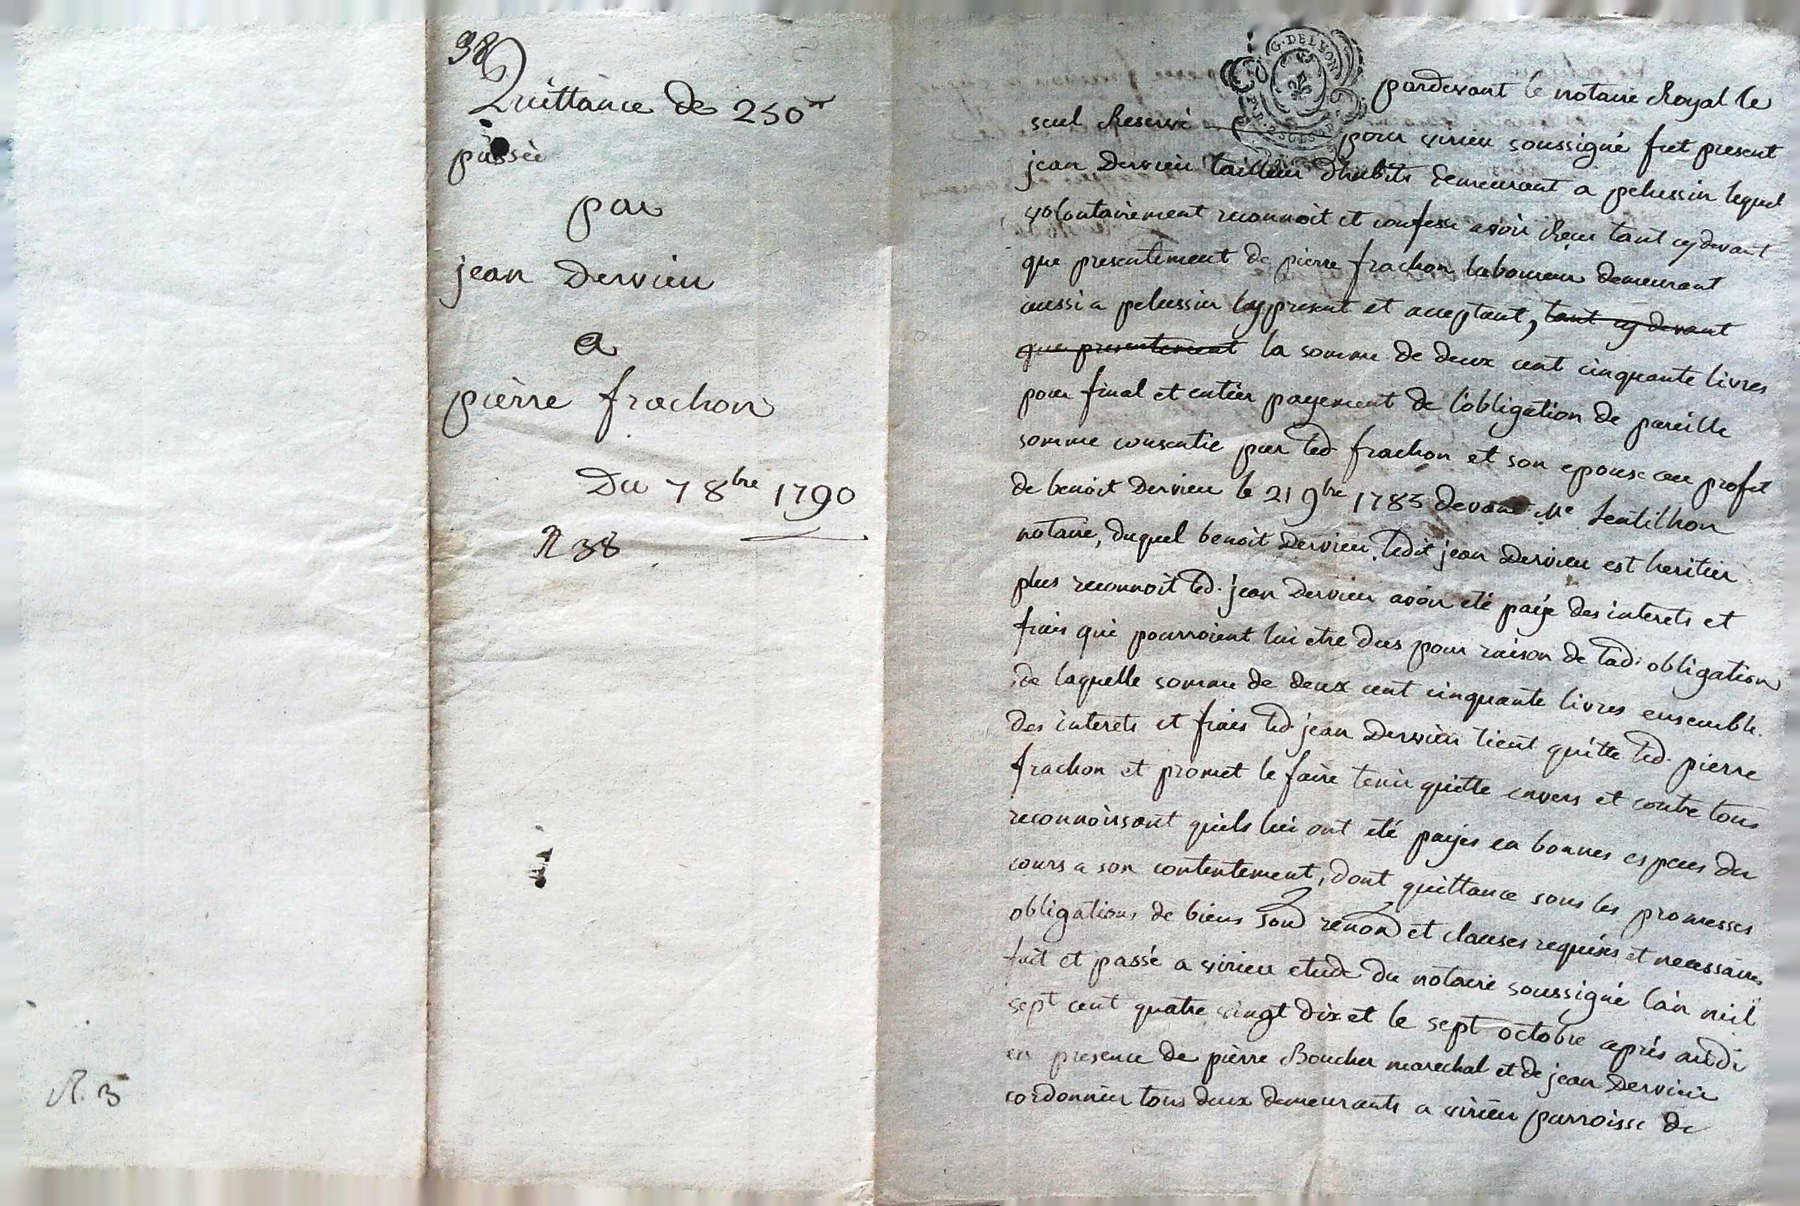 38
Quittance de 250#
passée
par
jean Dervieu
a
pierre frachon
Du 7 8bre 1790
N 38
N. 3
G. DE LYON
pardevant le notaire Royal le
seul Reservé pour virieu soussigné fut present
jean Dervieu tailleur d'habits demeurant a pelussin lequel
volontairement reconnoit et confesse avoir Receu tant cy devant
que presentement de pierre frachon laboureur demeurant
aussi a pelussin icy present et acceptant, tant cy devant
que presentement la somme de deux cent cinquante livres
pour final et entier payement de l'obligation de pareille
somme consentie par led. frachon et son epouse au profit
de benoit Dervieu le 21 9bre 1783 devant Me Sentilhon
notaire, duquel benoit Dervieu ledit jean Dervieu est heritier
plus reconnoit led. jean Dervieu avoir eté payé des interets et
frais qui pourroient lui etre dus pour raison de lad. obligation
de laquelle somme de deux cent cinquante livres ensemble
des interets et frais led jean Dervieu tient quitte led. pierre
frachon et promet le faire tenir quitte envers et contre tous
reconnoissant quils lui ont eté payés en bonnes especes du
cours a son contentement, dont quittance sous les promesses
obligations de biens soud renond et clauses requises et necessaires
fait et passé a virieu etude du notaire soussigné l'an mil
sept cent quatre vingt dix et le sept octobre après midi
en presence de pierre Boucher marechal et de jean Dervieu
cordonnier tous deux demeurants a virieu parroisse de